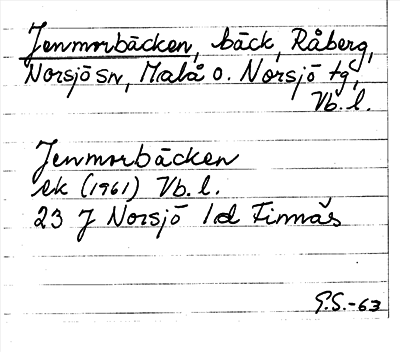 Jenmorbäcken, bäck, Råberg,
Norsjö sn, Malå o. Norsjö tg,
Vb. l.
Jenmorbäcken
ek (1961) Vb. l.
23 J Norsjö 1d Finnäs
G.S.-63